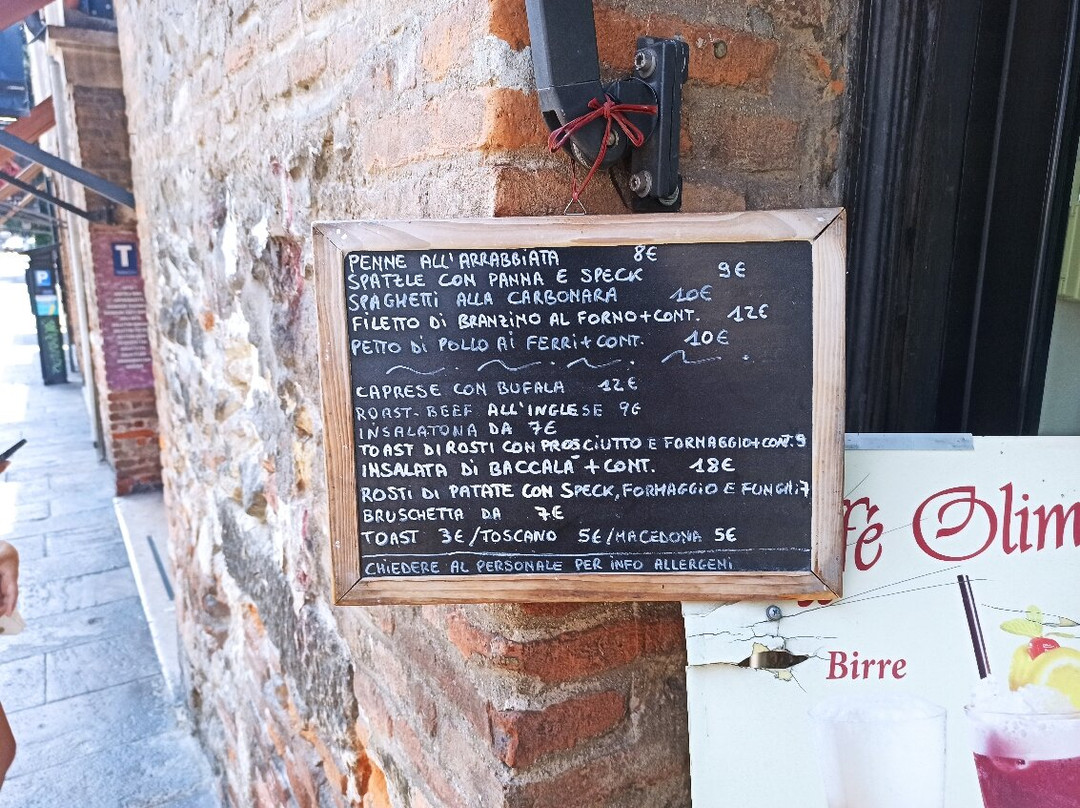 PENNE ALL'ARRABBIATA 8€
SPATZLE CON PANNA E SPECK 9€
SPAGHETTI ALLA CARBONARA 10€
FILETTO DI BRANZINO AL FORNO+CONT. 12€
PETTO DI POLLO AI FERRI+CONT. 10€
CAPRESE CON BUFALA 12€
ROAST-BEEF ALL'INGLESE 9€
INSALATONA DA 7€
TOAST DI ROSTI CON PROSCIUTTO E FORMAGGIO+CONT.9
INSALATA DI BACCALA'+CONT. 18€
ROSTI DI PATATE CON SPECK, FORMAGGIO E FUNGHI:7
BRUSCHETTA DA 7€
TOAST 3€/TOSCANO 5€/MACEDONIA 5€
CHIEDERE AL PERSONALE PER INFO ALLERGENI
ffè Olim
Birre
T
P